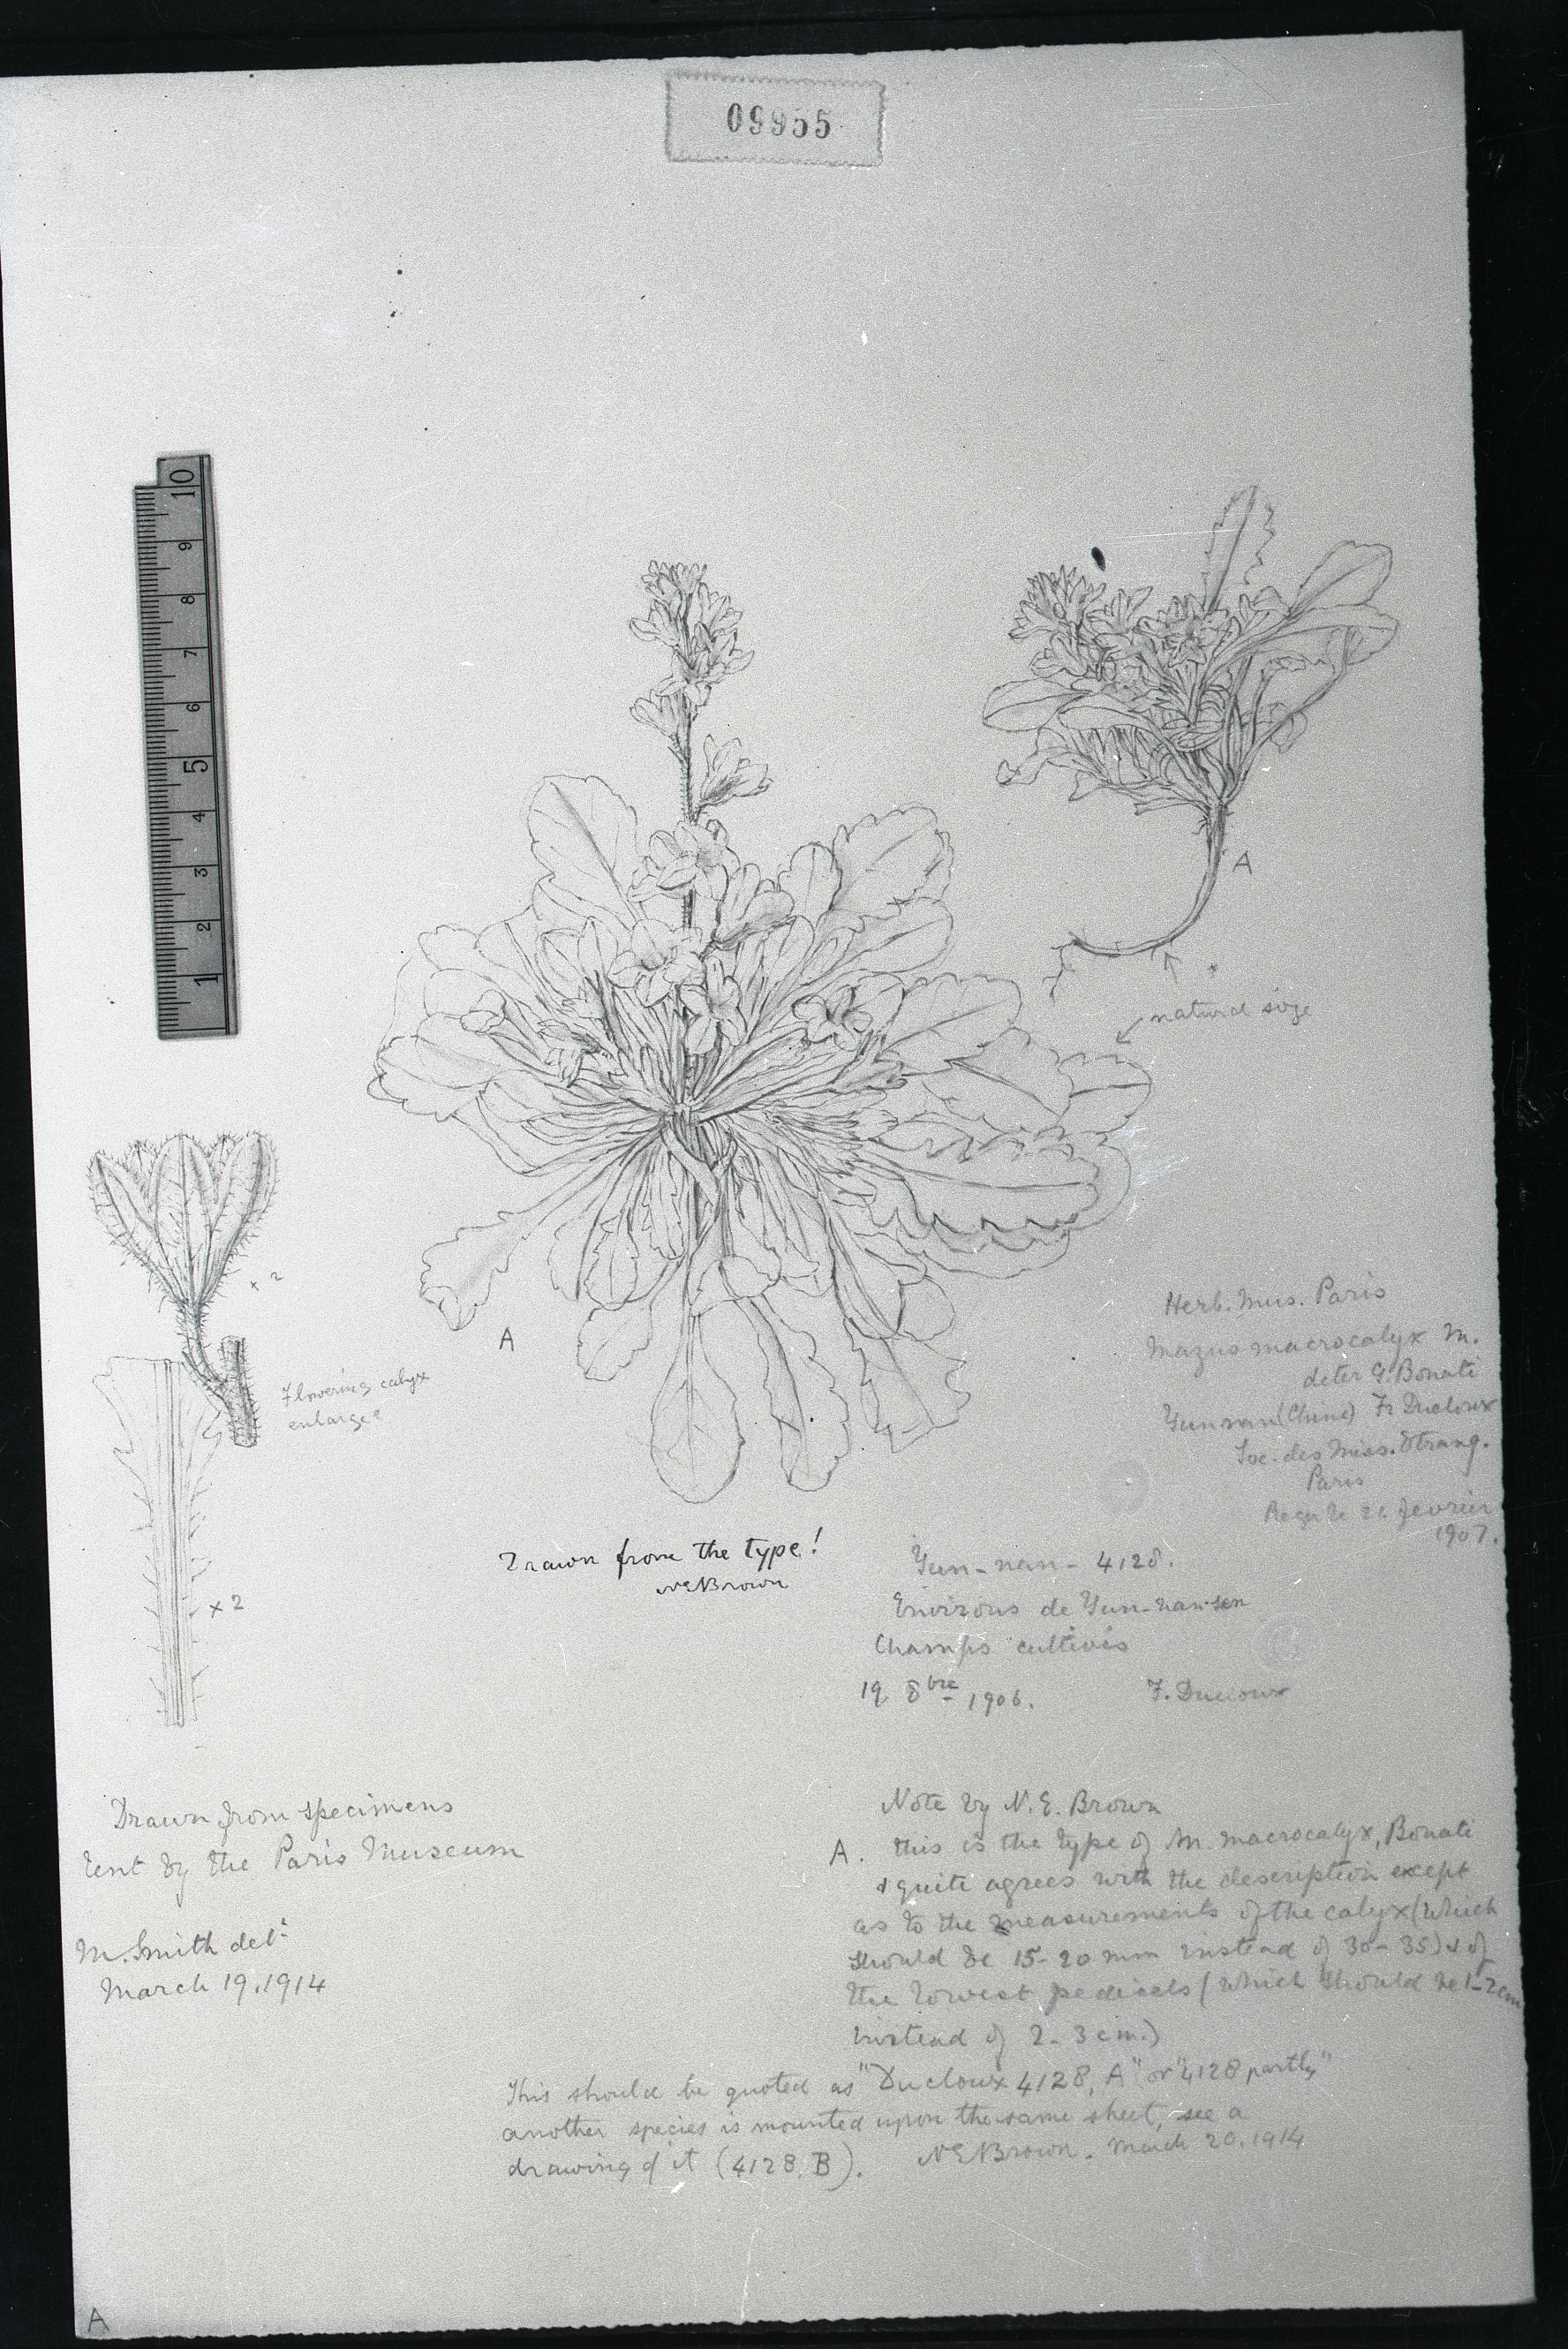 09955
10
9
8
7
6
5
4
3
2
1
A
natural size
× 2
A
Flowering calyx
enlarged
× 2
Herb. Mus. Paris
Mazus macrocalyx M.
deter G. Bonati
Yunnan (Chine) Fr Ducloux
Soc. des Miss. Etrang.
Paris
Reçu le 21 fevrier
1907.
Drawn from the type!
NEBrown
Yun-nan - 4128.
Environs de Yun-nan-sen
Champs cultivés
19 8bre 1906. F. Ducloux
Drawn from specimens
lent by the Paris Museum
M. Smith delt
March 19. 1914
Note by N. E. Brown
A. this is the type of M. macrocalyx, Bonati
& quite agrees with the description except
as to the measurements of the calyx (which
should be 15-20 mm instead of 30-35) & of
the lowest pedicels (which should be 1-2 cm
instead of 2-3 cm.)
This should be quoted as "Ducloux 4128, A" or "4128 partly"
another species is mounted upon the same sheet, see a
drawing of it (4128, B). NEBrown. March 20. 1914
A